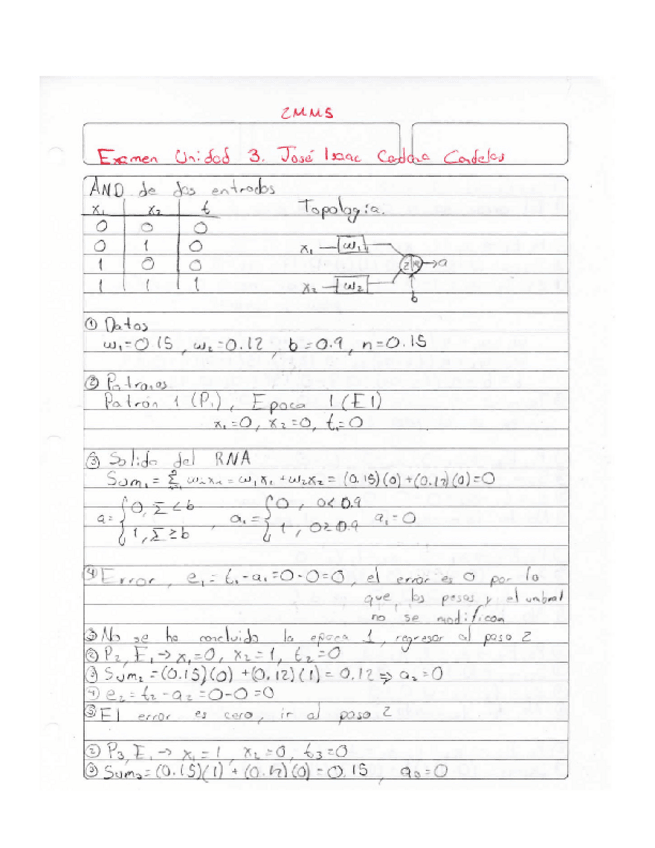 2MM5
Examen Unidad 3. José Isaac
AND de dos entradas
x₁ x₂ t Topología.
0 0 0
0 1 0
1 0 0
1 1 1
x₁ ω₁ a
x₂ ω₂
b
① Datos
ω₁=0.15, ω₂=0.12, b=0.9, n=0.15
② Patrones
Patrón 1 (P₁), Epoca 1 (E1)
x₁=0, x₂=0, t₁=0
③ Salida del RNA
Sum₁ = Σ = ω₁x₁+ω₂x₂ = (0.15)(0)+(0.12)(0)=0
a={0, Σ<b , a₁={0, 0<0.9 a₁=0
1, Σ≥b 1, 0≥0.9
④ Error, e₁=t₁-a₁=0-0=0, el error es 0 por lo
que, los pesos y el umbral
no se modifican
⑤ No se ha concluido la epoca 1, regresar al paso 2
② P₂, E₁→x₁=0, x₂=1, t₂=0
③ Sum₂=(0.15)(0)+(0.12)(1)=0.12⇒a₂=0
④ e₂=t₂-a₂=0-0=0
⑤ El error es cero, ir al paso 2
② P₃, E₁→x₁=1 x₂=0, t₃=0
③ Sum₃=(0.15)(1)+(0.12)(0)=0.15, a₃=0